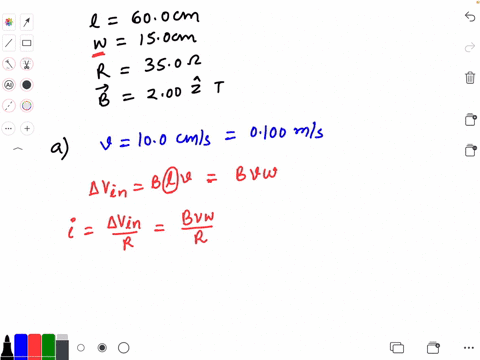 l = 60.0 cm
w = 15.0 cm
R = 35.0 Ω
B⃗ = 2.00 ẑ T
a) v = 10.0 cm/s = 0.100 m/s
ΔVin = B l v = B v w
i = ΔVin/R = Bvw/R